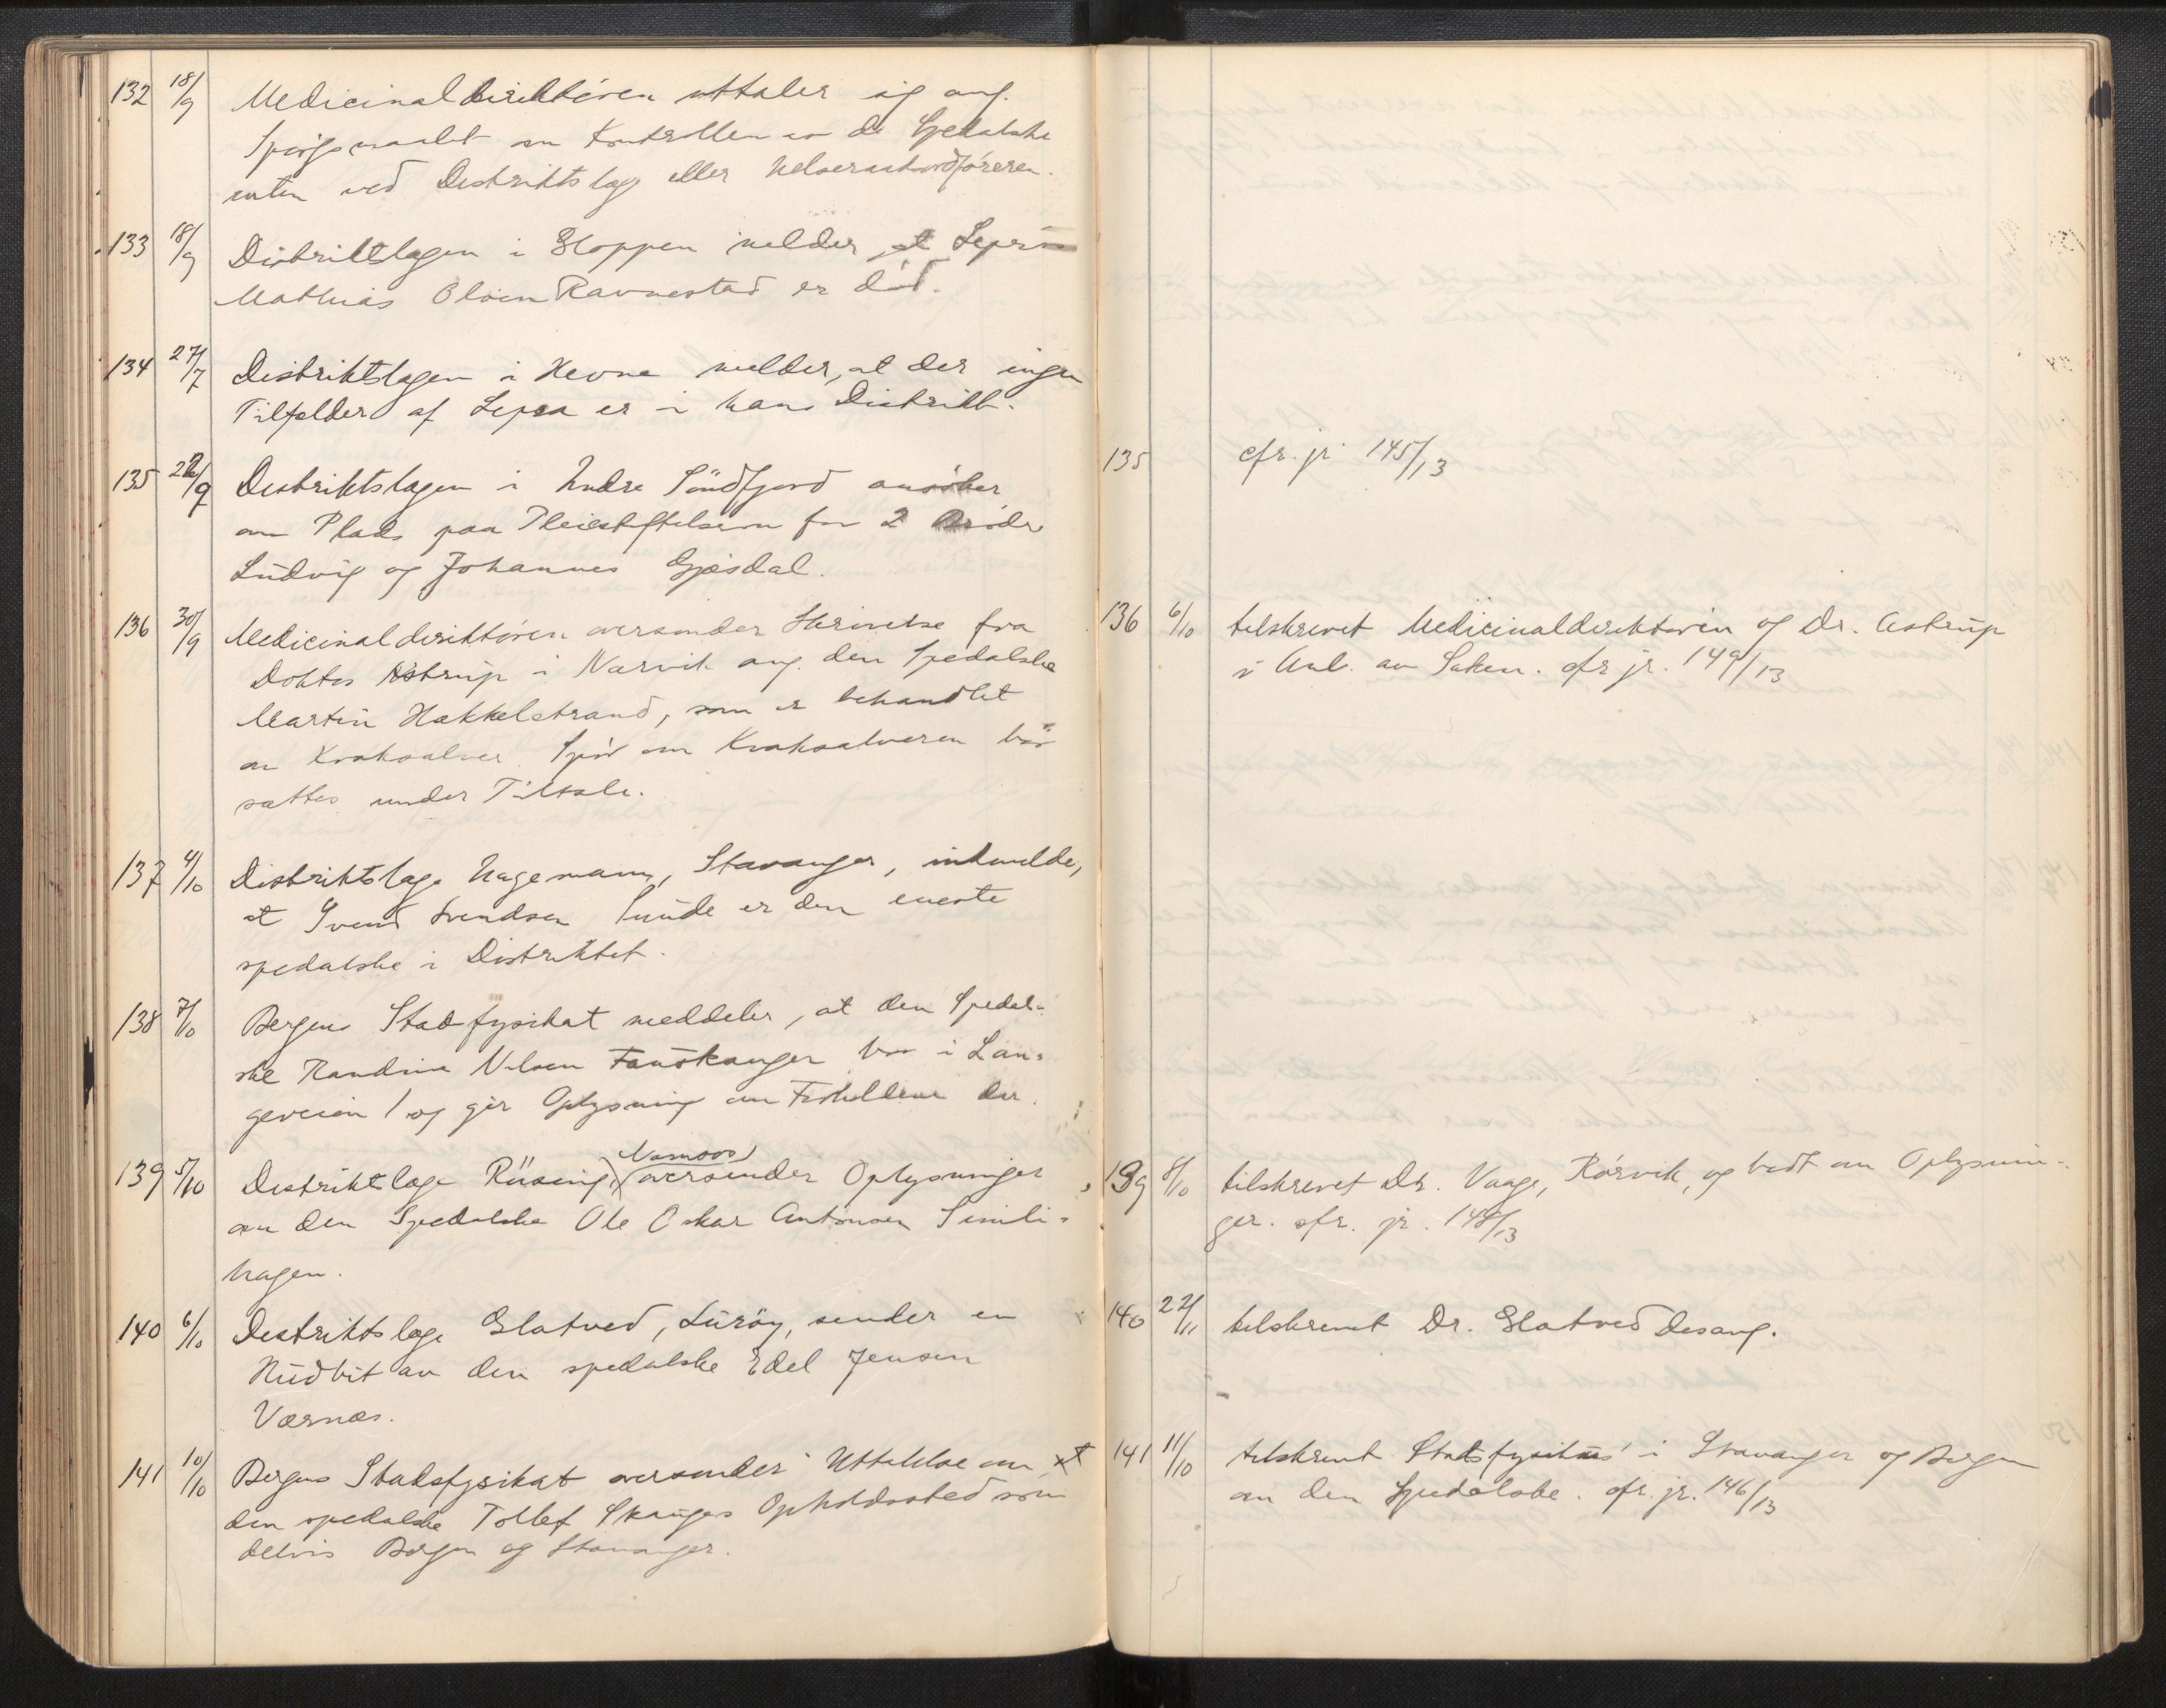 132 18/9 Medicinaldirektören uttaler sig ang.
Spørgsmaalet om Kontrollen av de Spedalske
enten ved Distriktslæge eller Helseraadsordföreren.
133 18/9 Distriktslægen i Gloppen melder, at Leprös
Mathias Olsen Ravnestad er död.
134 27/7 Distriktslægen i Hevne melder, at der ingen
Tilfælder af Lepra er i hans Distrikt.
135 22/9 Distriktslægen i Indre Söndfjord ansöker
om Plads paa Pleiestiftelsen for 2 Bröder
Ludvig og Johannes Gjesdal.
136 30/9 Medicinaldirektören oversender Skrivelse fra
Doktor Astrup i Narvik ang. den Spedalske
Martin Hakkelstrand, som er behandlet
av Kvaksalver. Spör om Kvaksalveren bör
sættes under Tiltale.
137 4/10 Distriktslæge Hagemann, Stavanger, indmelder,
at Svend Svendsen Sunde er den eneste
spedalske i Distriktet.
138 7/10 Bergens Stadsfysikat meddeler, at den Spedal-
ske Randine Nilsen Fauskanger bor i Lan-
geveien 1 og gir Oplysning om Forholdene der.
139 5/10 Distriktslæge Riising, Namsos, oversender Oplysninger
om den Spedalske Ole Oskar Antonsen Simli-
hagen.
140 6/10 Distriktslæge Glatved, Luröy, sender en
Hudbit av den spedalske Edel Jensen
Værnæs.
141 10/10 Bergens Stadsfysikat oversender Uttalelse om at
den spedalske Tollef Skauges Opholdssted som
delvis Bergen og Stavanger.
135 cfr. jr 145/13
136 6/10 tilskrevet Medicinaldirektören og Dr. Astrup
i Anl. av Saken. cfr jr. 149/13
139 8/10 tilskrevet Dr. Vaage, Rörvik, og bedt om Oplysnin-
ger. cfr. jr. 148/13
140 22/11 tilskrevet Dr. Glatved desang.
141 11/10 tilskrevet Stadsfysikus i Stavanger og Bergen
om den Spedalske. cfr. jr. 146/13